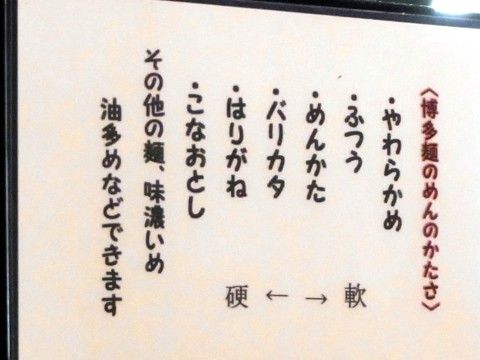 〈博多麺のめんのかたさ〉
・やわらかめ
・ふつう
・めんかた
・バリカタ
・はりがね
・こなおとし
硬 ← → 軟
その他の麺、味濃いめ
油多めなどできます